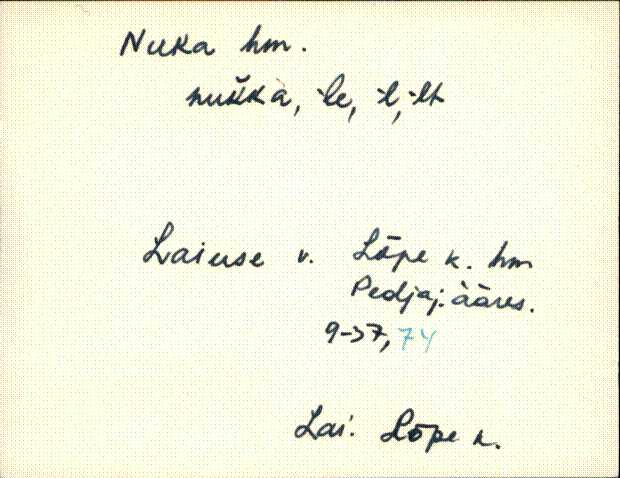 Nuka hm.
nuǩka, -le, -l, -lt
Laiuse v. Lõpe k. hm
Pedjaj. ääres.
9-37, 74
Lai. Lõpe k.